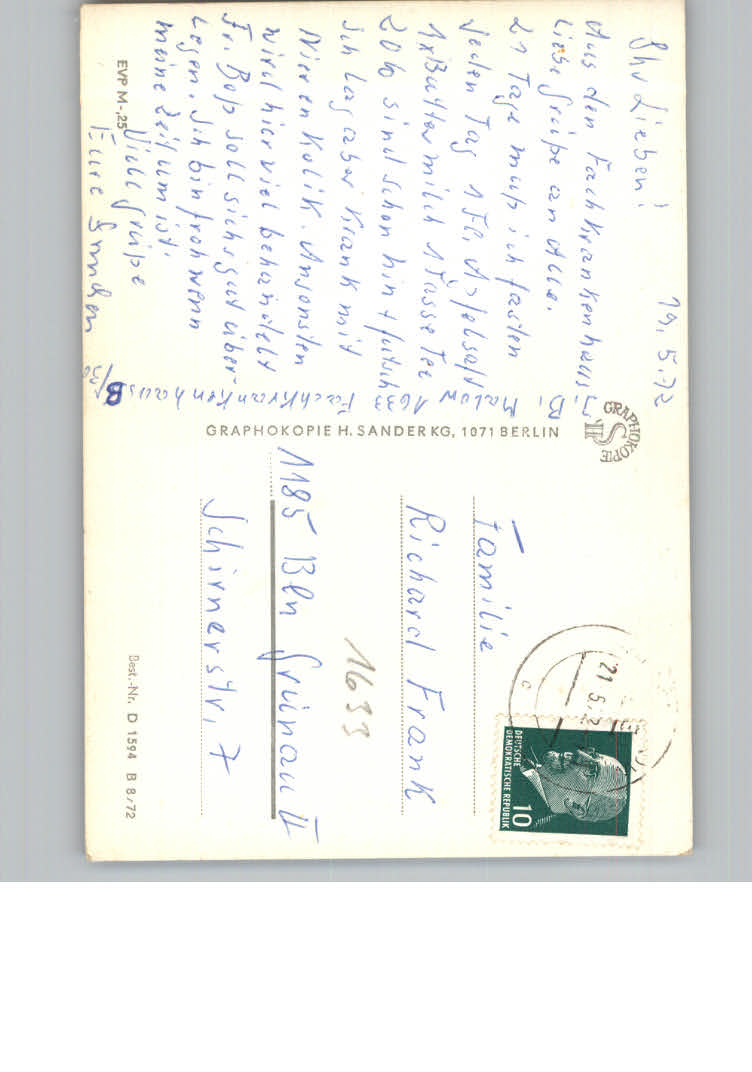 19.5.72
Ihr Lieben!
Aus dem Fachkrankenhaus
liebe Grüße an Alle.
21 Tage muß ich fasten
jeden Tag 1 Fl. Apfelsaft
1x Buttermilch 1 Tasse Tee
20 b sind schon hin + futsch
Ich lag aber krank mit
Nieren Kolik. Ansonsten
wird hier viel behandelt
Fr. Bop soll sichs gut über-
legen. Ich bin froh wenn
meine Zeit um ist.
Viele Grüße
Eure
Mahlow 1633 Fachkrankenhaus B
EVP M -,25
GRAPHOKOPIE H. SANDER KG, 1071 BERLIN
GRAPHOKOPIE
HS
Familie
Richard Frank
1633
1185 Bln Grünau II
Schirnerstr. 7
Best.-Nr. D 1594 B 8/72
21.5.72
DEUTSCHE
DEMOKRATISCHE REPUBLIK
10